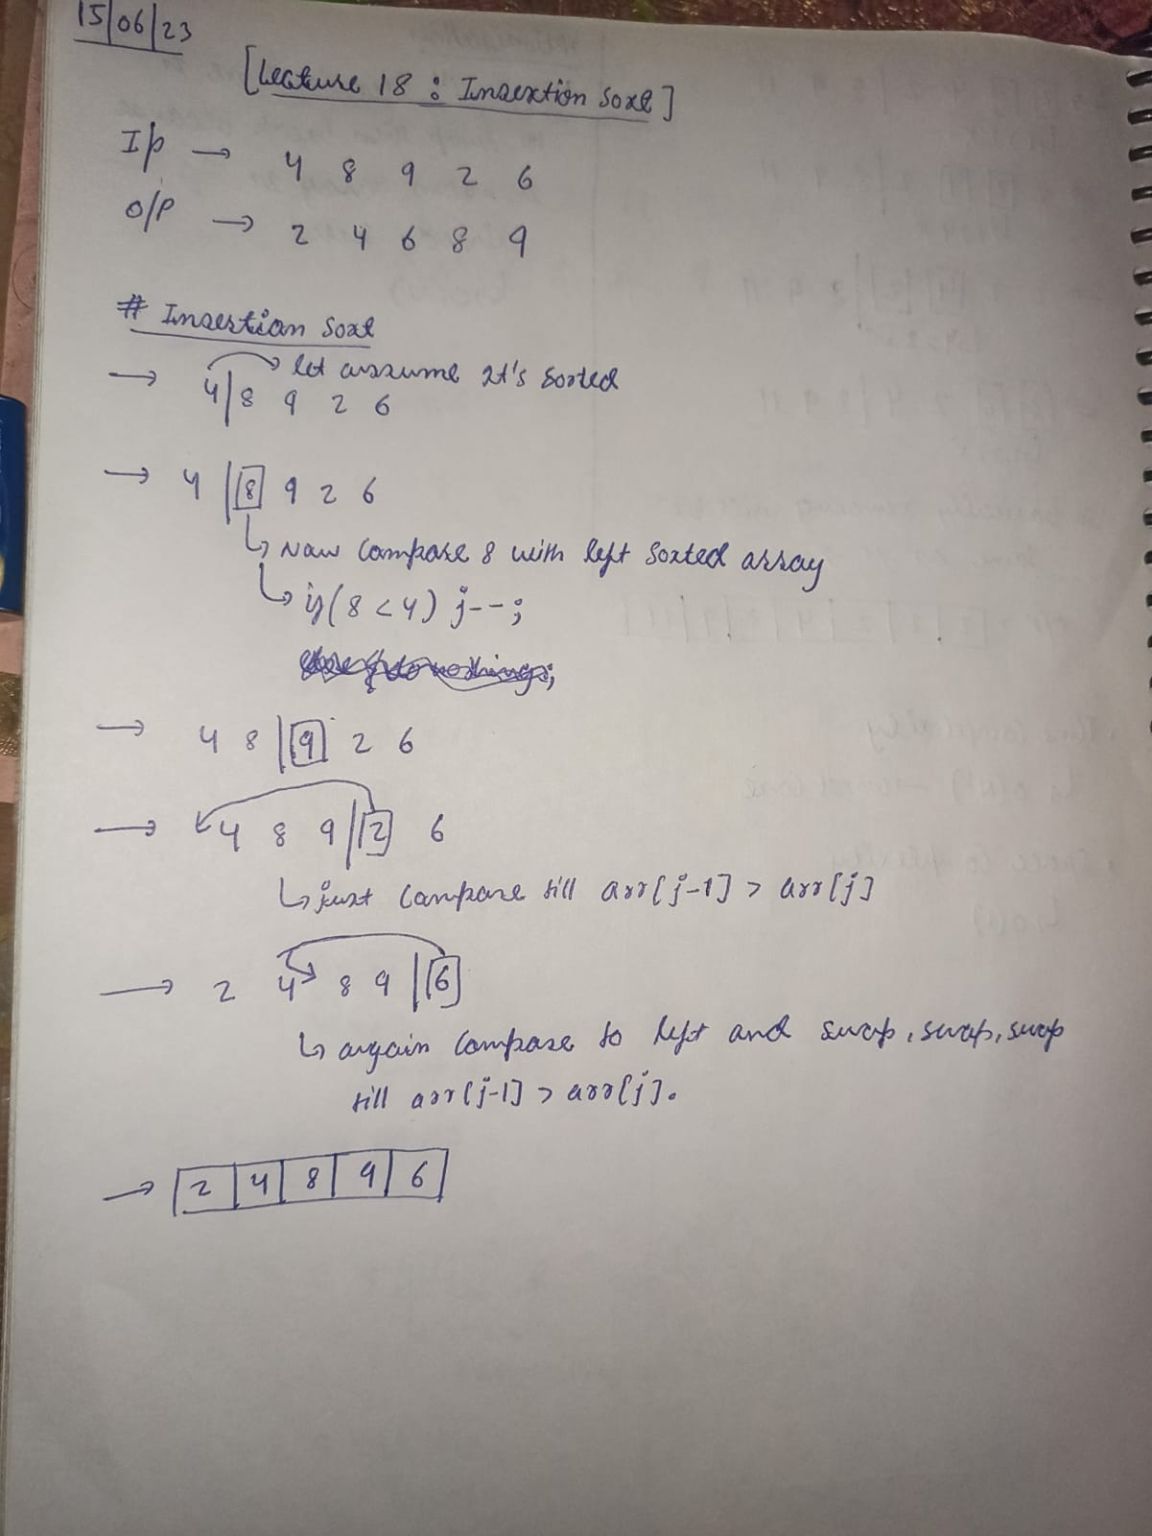 15/06/23
[Lecture 18 : Insertion Sort]
I/p → 4 8 9 2 6
O/P → 2 4 6 8 9
# Insertion Sort
→ 4 | 8 9 2 6 → let assume It's Sorted
→ 4 | 8 9 2 6
↳ Now Compare 8 with left Sorted array
↳ if(8 < 4) j--;
→ 4 8 | 9 2 6
→ 4 8 9 | 2 6
↳ just Compare till arr[j-1] > arr[j]
→ 2 4 8 9 | 6
↳ again Compare to left and swap, swap, swap
till arr[j-1] > arr[j].
→ 2 | 4 | 8 | 9 | 6